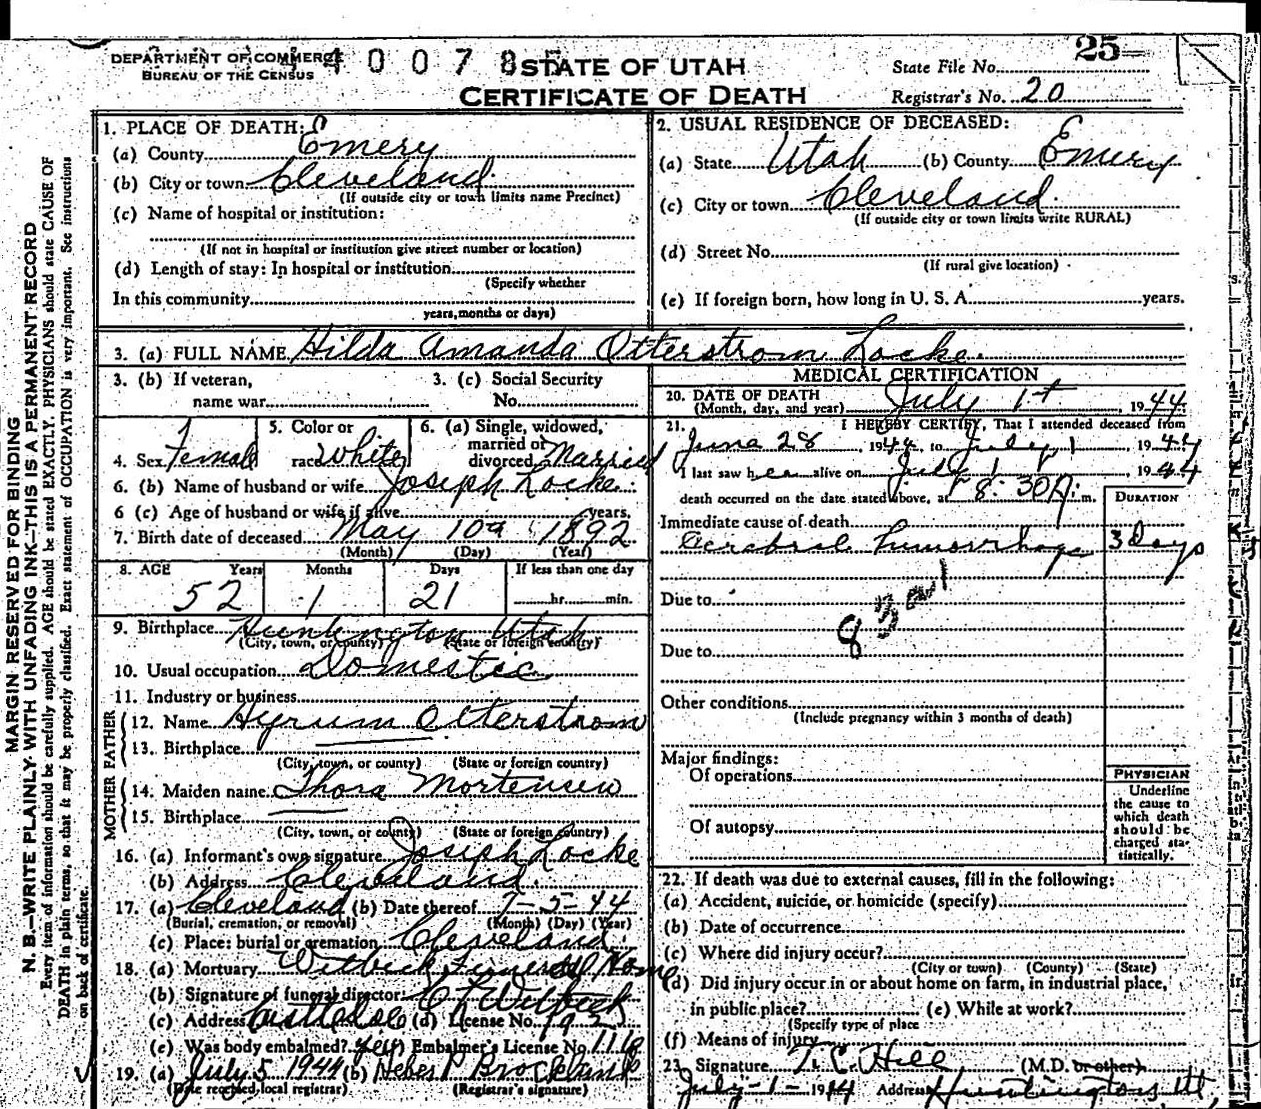 DEPARTMENT OF COMMERCE
BUREAU OF THE CENSUS
STATE OF UTAH
CERTIFICATE OF DEATH
25
State File No.
Registrar's No. 20
MARGIN RESERVED FOR BINDING
N. B.—WRITE PLAINLY WITH UNFADING INK—THIS IS A PERMANENT RECORD
Every item of information should be carefully supplied. AGE should be stated EXACTLY. PHYSICIANS should state CAUSE OF
DEATH in plain terms, so that it may be properly classified. Exact statement of OCCUPATION is very important. See instructions
on back of certificate.
1. PLACE OF DEATH:
(a) County Emery
(b) City or town Cleveland
(If outside city or town limits name Precinct)
(c) Name of hospital or institution:
(If not in hospital or institution give street number or location)
(d) Length of stay: In hospital or institution
(Specify whether
In this community
years, months or days)
2. USUAL RESIDENCE OF DECEASED:
(a) State Utah (b) County Emery
(c) City or town Cleveland
(If outside city or town limits write RURAL)
(d) Street No.
(If rural give location)
(e) If foreign born, how long in U. S. A. years.
3. (a) FULL NAME Hilda Amanda Otterstrom Locke.
3. (b) If veteran,
name war
3. (c) Social Security
No.
4. Sex Female
5. Color or
race White
6. (a) Single, widowed,
married or
divorced Married
6. (b) Name of husband or wife Joseph Locke
6 (c) Age of husband or wife if alive years,
7. Birth date of deceased May 10 1892
(Month) (Day) (Year)
8. AGE Years Months Days If less than one day
52 1 21 hr. min.
9. Birthplace Huntington Utah
(City, town, or county) (State or foreign country)
10. Usual occupation Domestic
11. Industry or business
FATHER
12. Name Hyrum Otterstrom
13. Birthplace
(City, town, or county) (State or foreign country)
MOTHER
14. Maiden name Thora Mortensen
15. Birthplace
(City, town, or county) (State or foreign country)
16. (a) Informant's own signature Joseph Locke
(b) Address Cleveland.
17. (a) Cleveland (b) Date thereof 7-5-44
(Burial, cremation, or removal) (Month) (Day) (Year)
(c) Place: burial or cremation Cleveland
18. (a) Mortuary Witbeck Funeral Home
(b) Signature of funeral director
(c) Address Castledale (d) License No.
(e) Was body embalmed? yes Embalmer's License No. 116
19. (a) July 5 1944 (b)
(Date received local registrar) (Registrar's signature)
MEDICAL CERTIFICATION
20. DATE OF DEATH
(Month, day, and year) July 1st, 1944
21. I HEREBY CERTIFY, That I attended deceased from
June 28 1944 to July 1 1944
I last saw her alive on July 1 1944
death occurred on the date stated above, at 8:30 A. m.
DURATION
Immediate cause of death
Cerebral hemorrhage 3 Days
Due to
Due to
Other conditions
(Include pregnancy within 3 months of death)
Major findings:
Of operations
Of autopsy
PHYSICIAN
Underline
the cause to
which death
should be
charged sta-
tistically.
22. If death was due to external causes, fill in the following:
(a) Accident, suicide, or homicide (specify)
(b) Date of occurrence
(c) Where did injury occur?
(City or town) (County) (State)
(d) Did injury occur in or about home on farm, in industrial place,
in public place? (e) While at work?
(Specify type of place
(f) Means of injury
23. Signature T. C. Hill (M.D. or other)
July-1-1944 Address Huntington Ut,